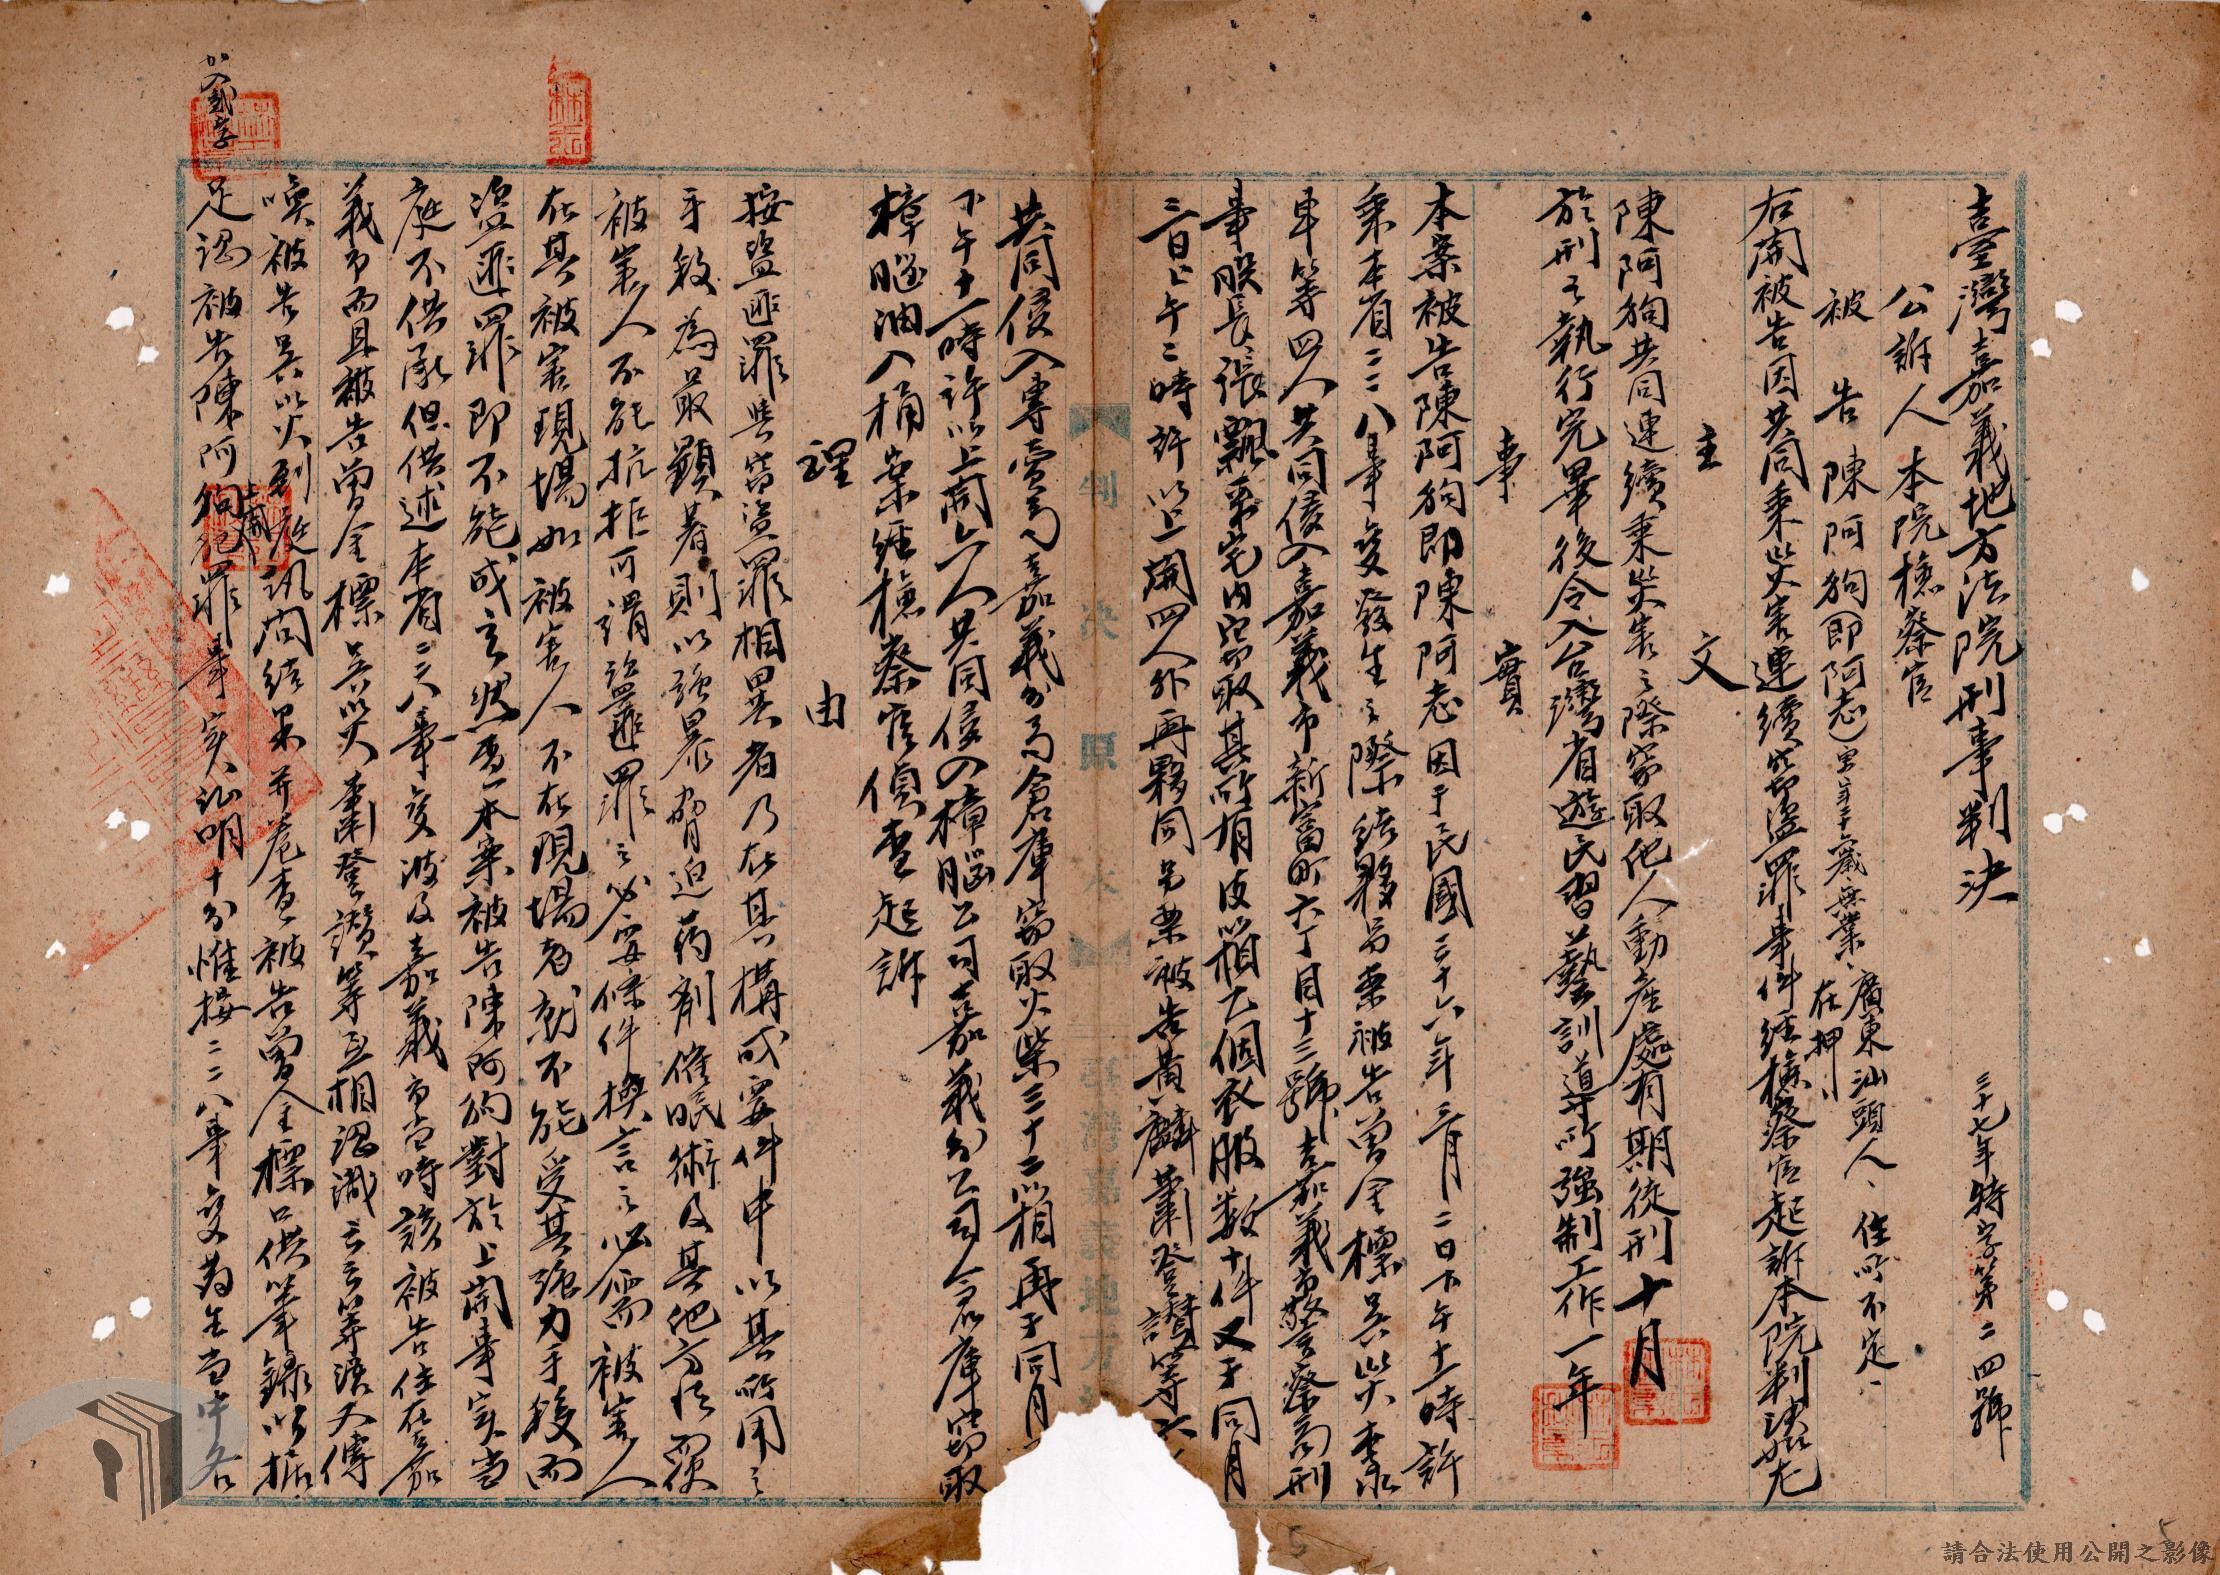 臺灣嘉義地方法院刑事判決
三十七年特字第二四號
公訴人 本院檢察官
被告 陳阿狗(即阿志) 男年三十歲無業、廣東汕頭人、住所不定、
在押
右開被告因共同乘災害連續竊盜罪事件經檢察官起訴本院判決如左
主文
陳阿狗共同連續乘災害之際竊取他人動產處有期徒刑十月
於刑之執行完畢後令入台灣省遊民習藝訓導所強制工作一年
事實
本案被告陳阿狗即陳阿志因于民國三十六年三月二日下午十一時許
乘本省二二八事變發生之際結夥另案被告曾金標吳以火李永
車等四人共同侵入嘉義市新富町六丁目十三號嘉義市警察局刑
事股長張飄萍宅內竊取其所有皮箱乙個衣服数十件又于同月
三日上午二時許以上開四人外再夥同另案被告黃麟蕭登讚等六
共同侵入專賣局嘉義分局倉庫竊取火柴三十二箱再于同月
下午十一時許以上開六人共同侵入樟腦公司嘉義分公司倉庫竊取
樟腦油入桶案經檢察官偵查起訴
理由
按盜匪罪與竊盜罪相異者乃在其構成要件中以其所用之
手段為最顯著則以強暴脅迫药剂催眠術及其他方法而使
被害人不能抗拒可謂盜匪罪之必要條件換言之必需被害人
在其被害現場如被害人不在現場者就不能受其強力手段而
盜匪罪即不能成立狀查本案被告陳阿狗對於上開事实当
庭不供承但供述本省二二八事变波及嘉義市当時該被告住在嘉
義市而且被告曾金標吳以火蕭登讚等互相認識云云等语又傳
喚被告吳以火到庭訊問結果并卷查被告曾金標口供筆錄以据
足認被告陳阿狗犯罪事实汕明十分惟按二二八事变為生当中各
加入貳字